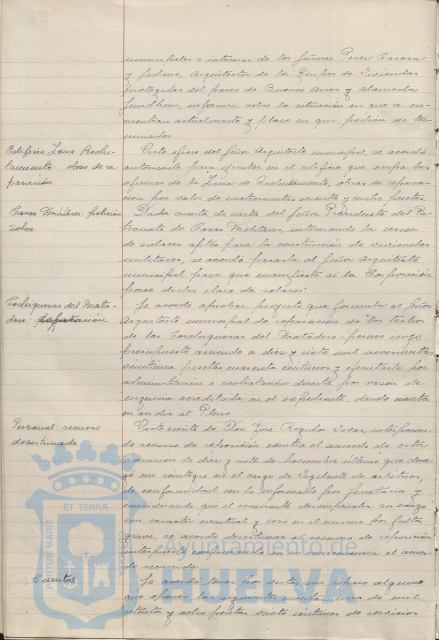 intereses de los Señores Perez Carasa
y Arquitectos de los Grupos de Viviendas
protegidas del paseo de Buenos Aires y Alameda
Sundheim, informen sobre la situación en que se en-
cuentran actualmente y plazo en que podrán ser ter-
minadas.
Edificio Zona Reclu-
tamiento obras de re-
paración
Visto oficio del Señor Arquitecto municipal, se acordó
autorizarle para ejecutar en el edificio que ocupa las
oficinas de la Zona de Reclutamiento, obras de repara-
ción por valor de cuatrocientas sesenta y ocho pesetas.
Casas Militares: petición
solar
Dada cuenta de carta del Señor Presidente del Pa-
tronato de Casas Militares, interesando la cesión
de solares aptos para la construcción de viviendas
militares, se acordó pasarla al Señor Arquitecto
municipal para que manifieste si la Corporación
posee dicha clase de solares.
del Mata-
dero: reparación
Se acordó aprobar proyecto que formula el Señor
Arquitecto municipal de reparación de los techos
de las del Matadero, cuyo
presupuesto asciende a diez y siete mil novecientas
pesetas céntimos y ejecutarlo por
administración o contratación directa por razón de
urgencia acreditada en el expediente, dando cuenta
en su día al Pleno.
Personal recurso
desestimado
Visto escrito de Don José interponien-
do recurso de reposición contra el acuerdo de esta
Comisión de diez y siete de Noviembre último que dene-
gó su reintegro en el cargo de Vigilante de arbitrios,
de conformidad con lo informado por Secretaría y
considerando que el recurrente desempeñaba su cargo
con carácter eventual y cesó en el mismo por falta
grave, se acordó desestimar el recurso de reposición
interpuesto el acuer-
do recurrido.
Cuentas
Se acordó tener por sin reparo alguno
que ofrecen las siguientes cuentas: una de mil
setenta y ocho pesetas céntimos de servicios
PORTUS MARIS
ET TERRAE
CUSTODIA
Ayuntamiento de
HUELVA